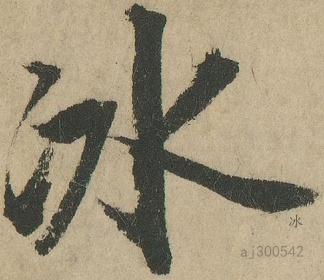 冰
冰
aj300542